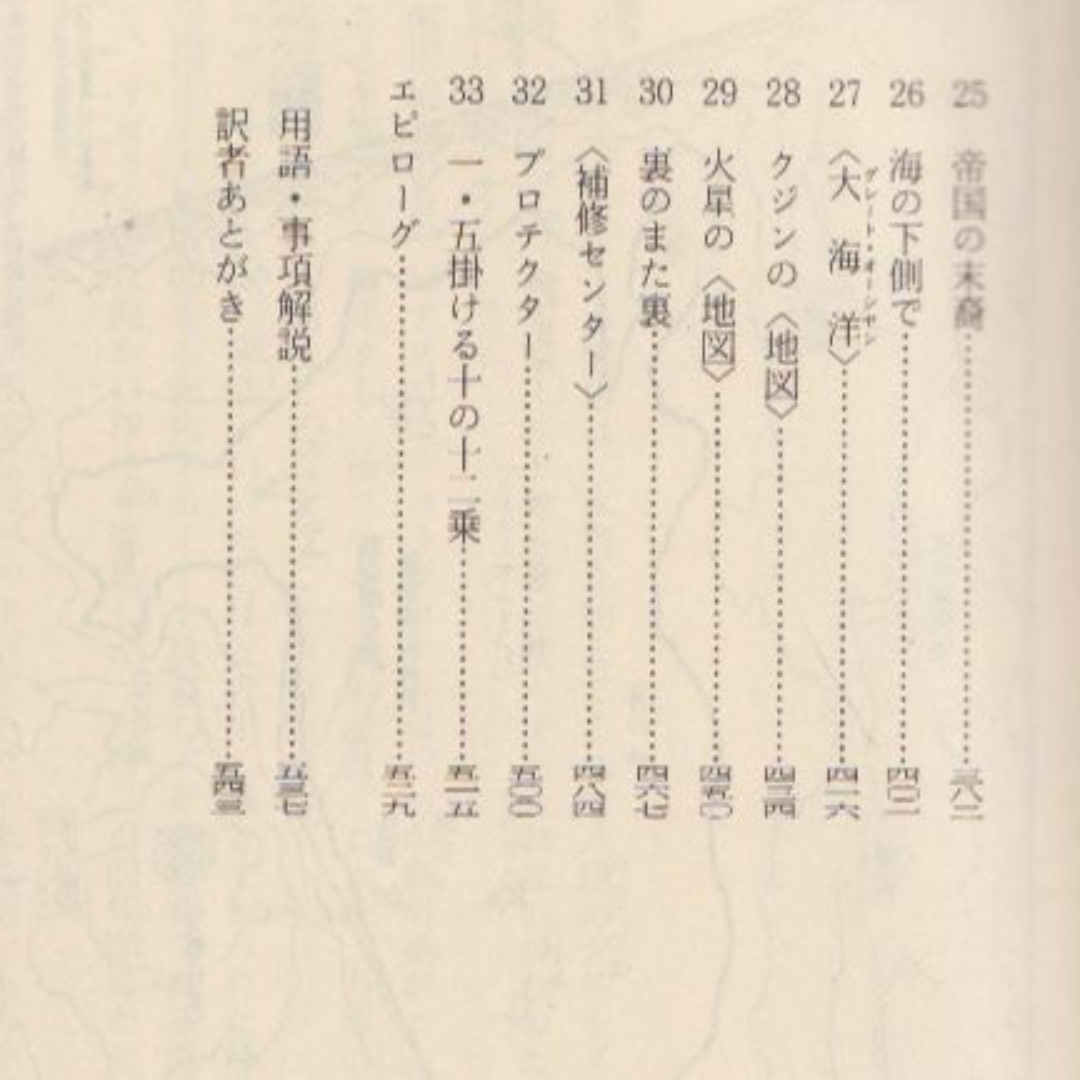 25 帝国の末裔……三八二
26 海の下側で……四〇一
27 〈大海洋〉……四一六
グレート・オーシャン
28 クジンの〈地図〉……四三四
29 火星の〈地図〉……四五〇
30 裏のまた裏……四六七
31 〈補修センター〉……四八四
32 プロテクター……五〇〇
33 一・五掛ける十の十二乗……五一五
エピローグ……五二九
用語・事項解説……五三七
訳者あとがき……五四三